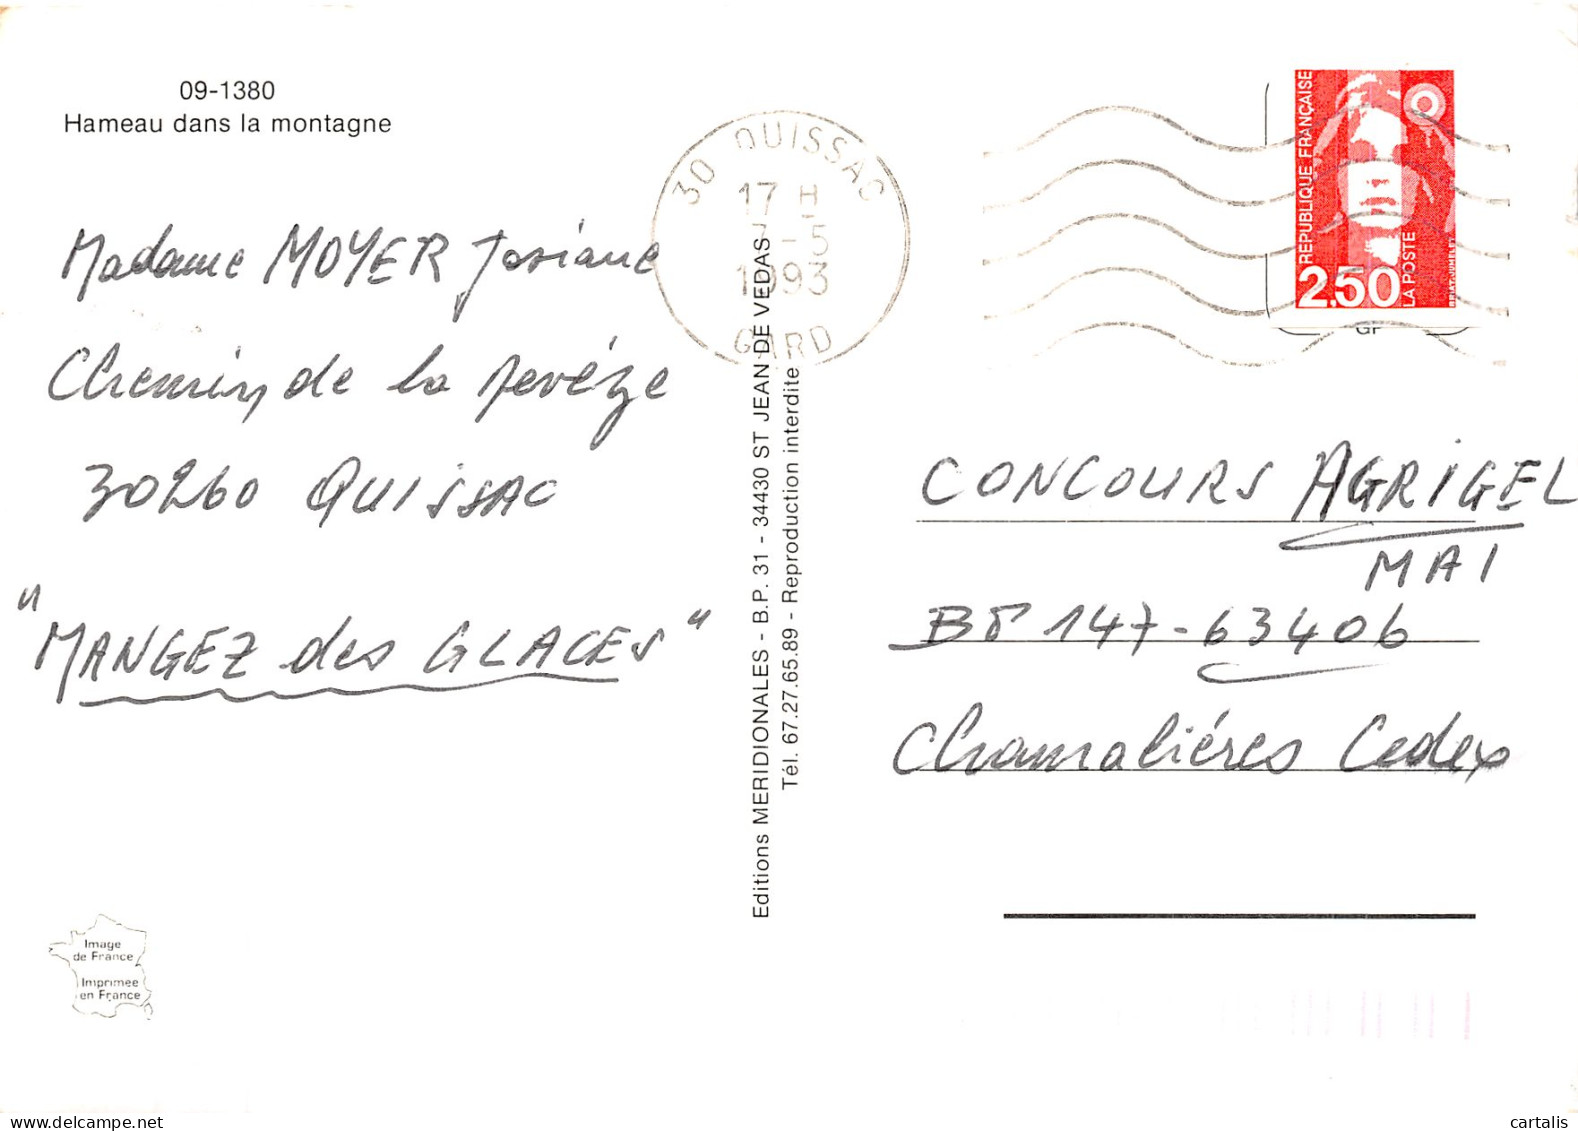 09-1380
Hameau dans la montagne
Madame MOYER Josiane
Chemin de la Devèze
30260 QUISSAC
"MANGEZ des GLACES"
Image
de France
Imprimee
en France
Editions MERIDIONALES - B.P. 31 - 34430 ST JEAN DE VEDAS
Tél. 67.27.65.89 - Reproduction interdite
30 QUISSAC
17 H
-5
1993
GARD
REPUBLIQUE FRANÇAISE
2,50
LA POSTE
BRIAT-JUMELET
CONCOURS AGRIGEL
MAI
BP 147-63406
Chamalières Cedex
delcampe.net
cartalis